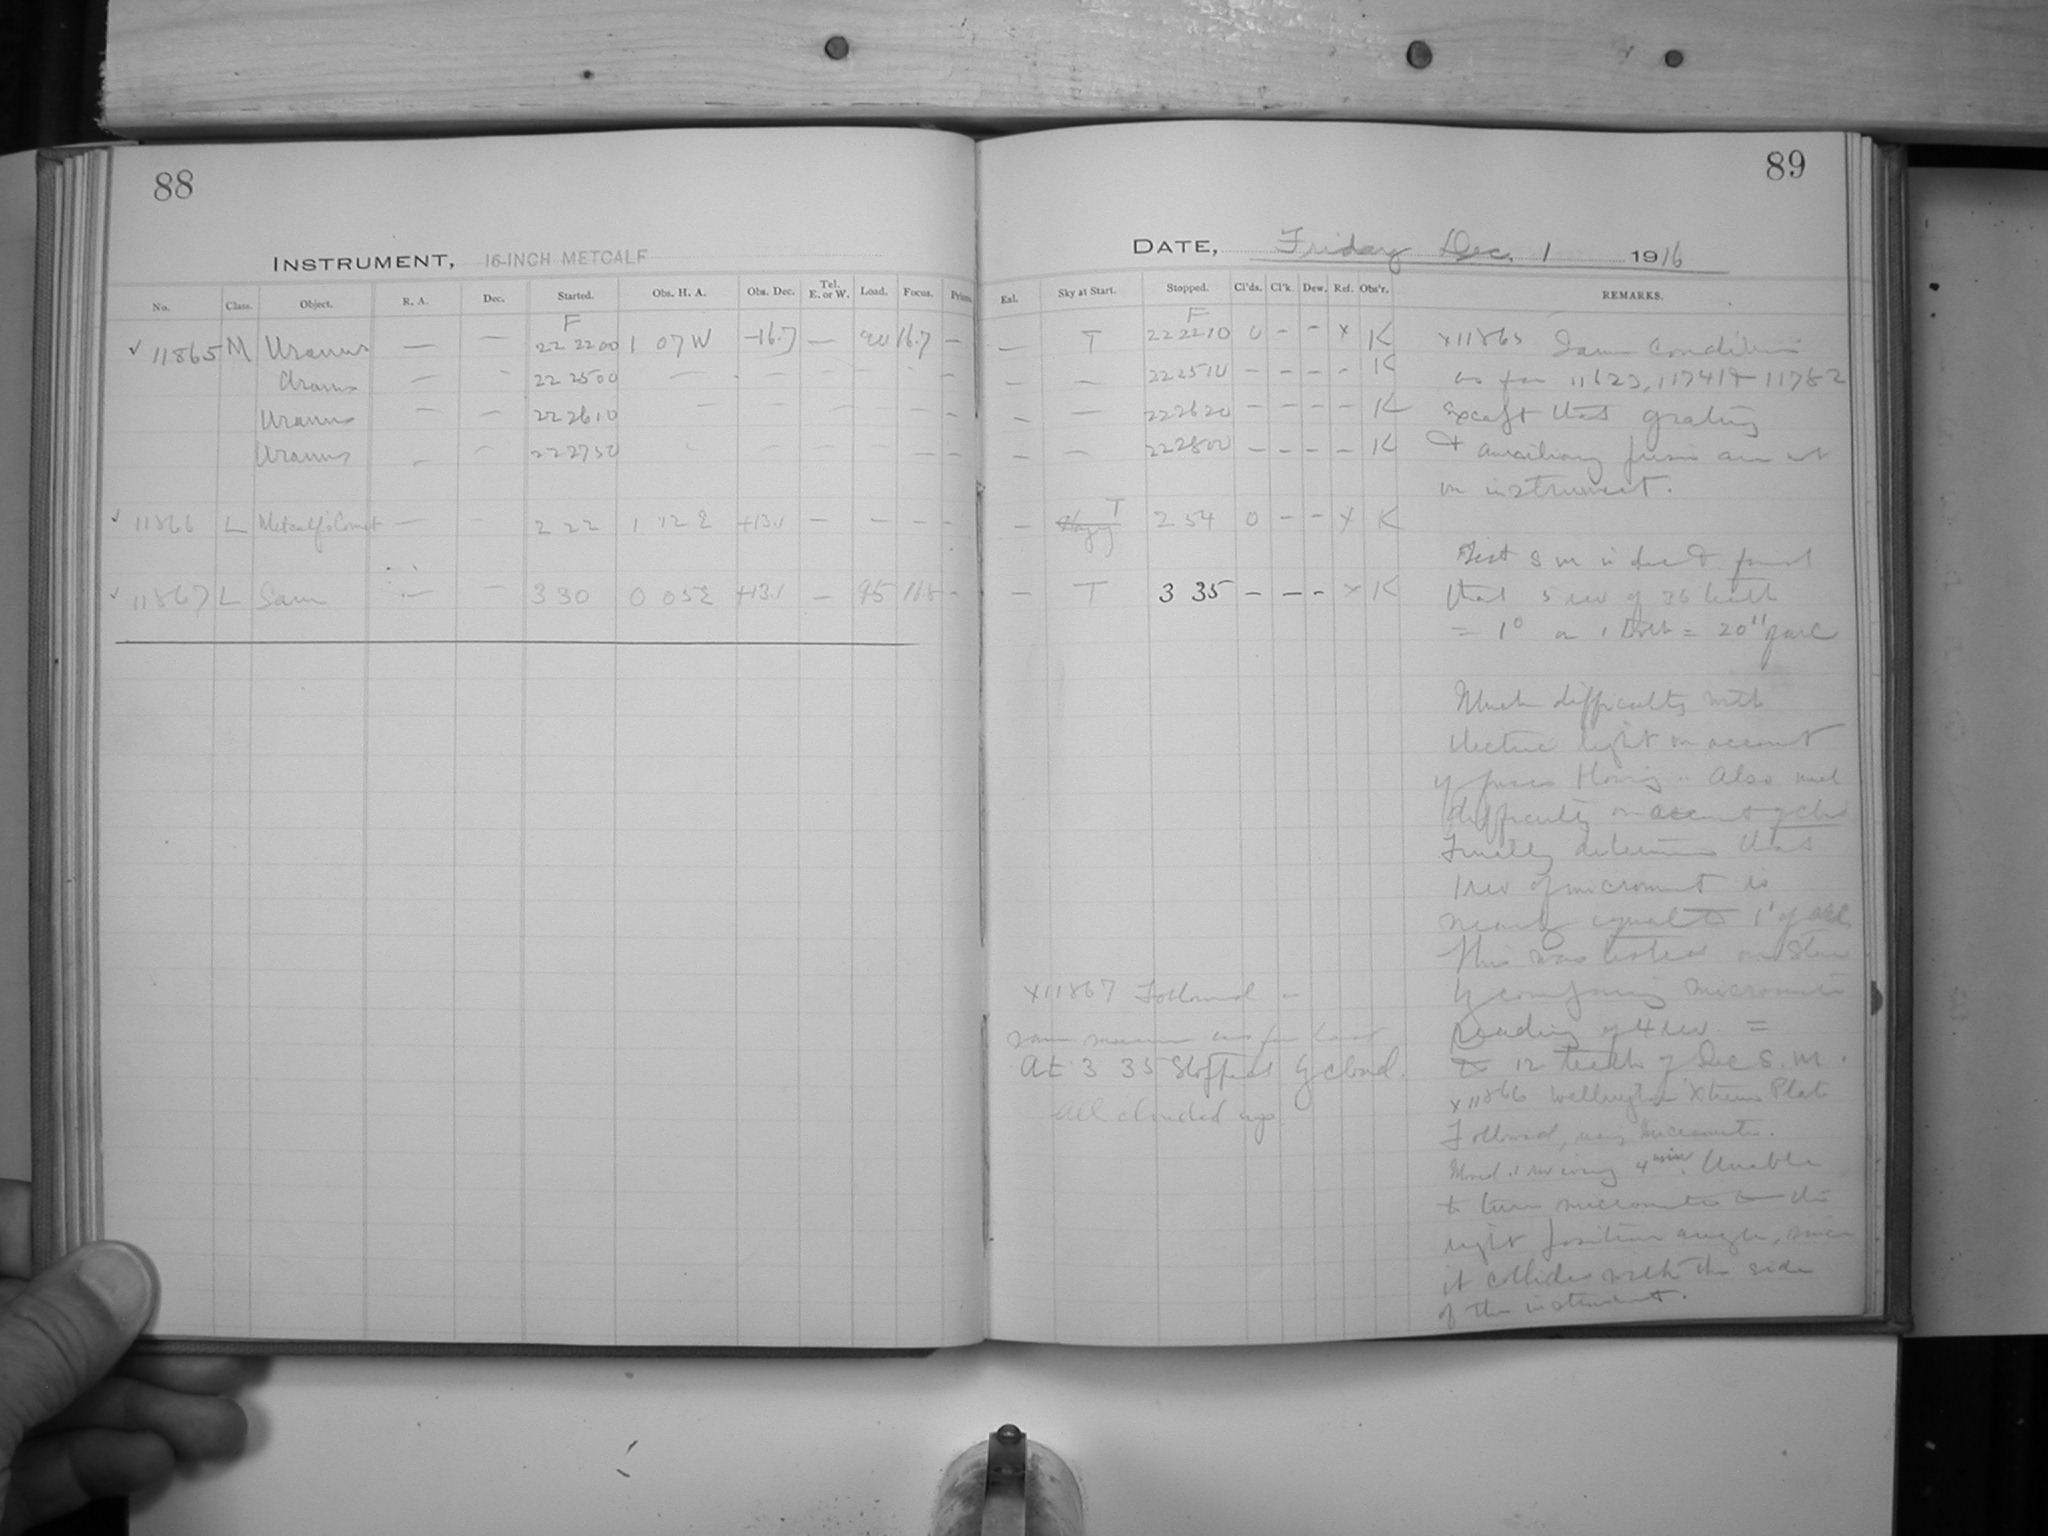 88
INSTRUMENT, 16-INCH METCALF
No. Class. Object. R. A. Dec. Started. Obs. H. A. Obs. Dec. Tel. E. or W. Load. Focus. Prism.
F
✓ 11865 M Uranus — — 22 22 00 1 07 W -16.7 — 90 16.7 —
Uranus — — 22 25 00 — — — — — —
Uranus — — 22 26 10 — — — — — —
Uranus — — 22 27 50 — — — — — —
✓ 11866 L Metcalf's Comet — — 2 22 1 12 E +13.1 — — — —
✓ 11867 L Same — — 3 30 0 05 E +13.1 — 95 16.8 —
89
DATE, Friday Dec. 1 1916
Eal. Sky at Start. Stopped. Cl'ds. Cl'k. Dew. Ref. Obs'r. REMARKS.
F
— T 22 22 10 0 — — x K
— — 22 25 10 — — — — K
— — 22 26 20 — — — — K
— — 22 28 00 — — — — K
— Hazy T 2 54 0 — — x K
— T 3 35 — — — x K
x11865 Same conditions
as for 11623, 11741 + 11782
except that grating
+ auxiliary prism are not
on instrument.
Test S M in Dec + found
that 5 rev of 36 teeth
= 1° or 1 tooth = 20" of arc
Much difficulty with
electric light on account
of fuses blowing. Also much
difficulty on account of
Finally determine that
1 rev of micromet is
nearly equal to 1' of arc
This was tested on Star
by comparing micrometer
reading of 4 rev. =
to 12 teeth of Dec S. M.
x11866 Wellington Xtreme Plate
Followed, using micrometer.
Moved .1 rev every 4 min. Unable
to turn micrometer to the
right position angle, since
it collides with the side
of the instrument.
x11867 Followed —
same manner as for last
At 3 35 Stopped by cloud.
All clouded up